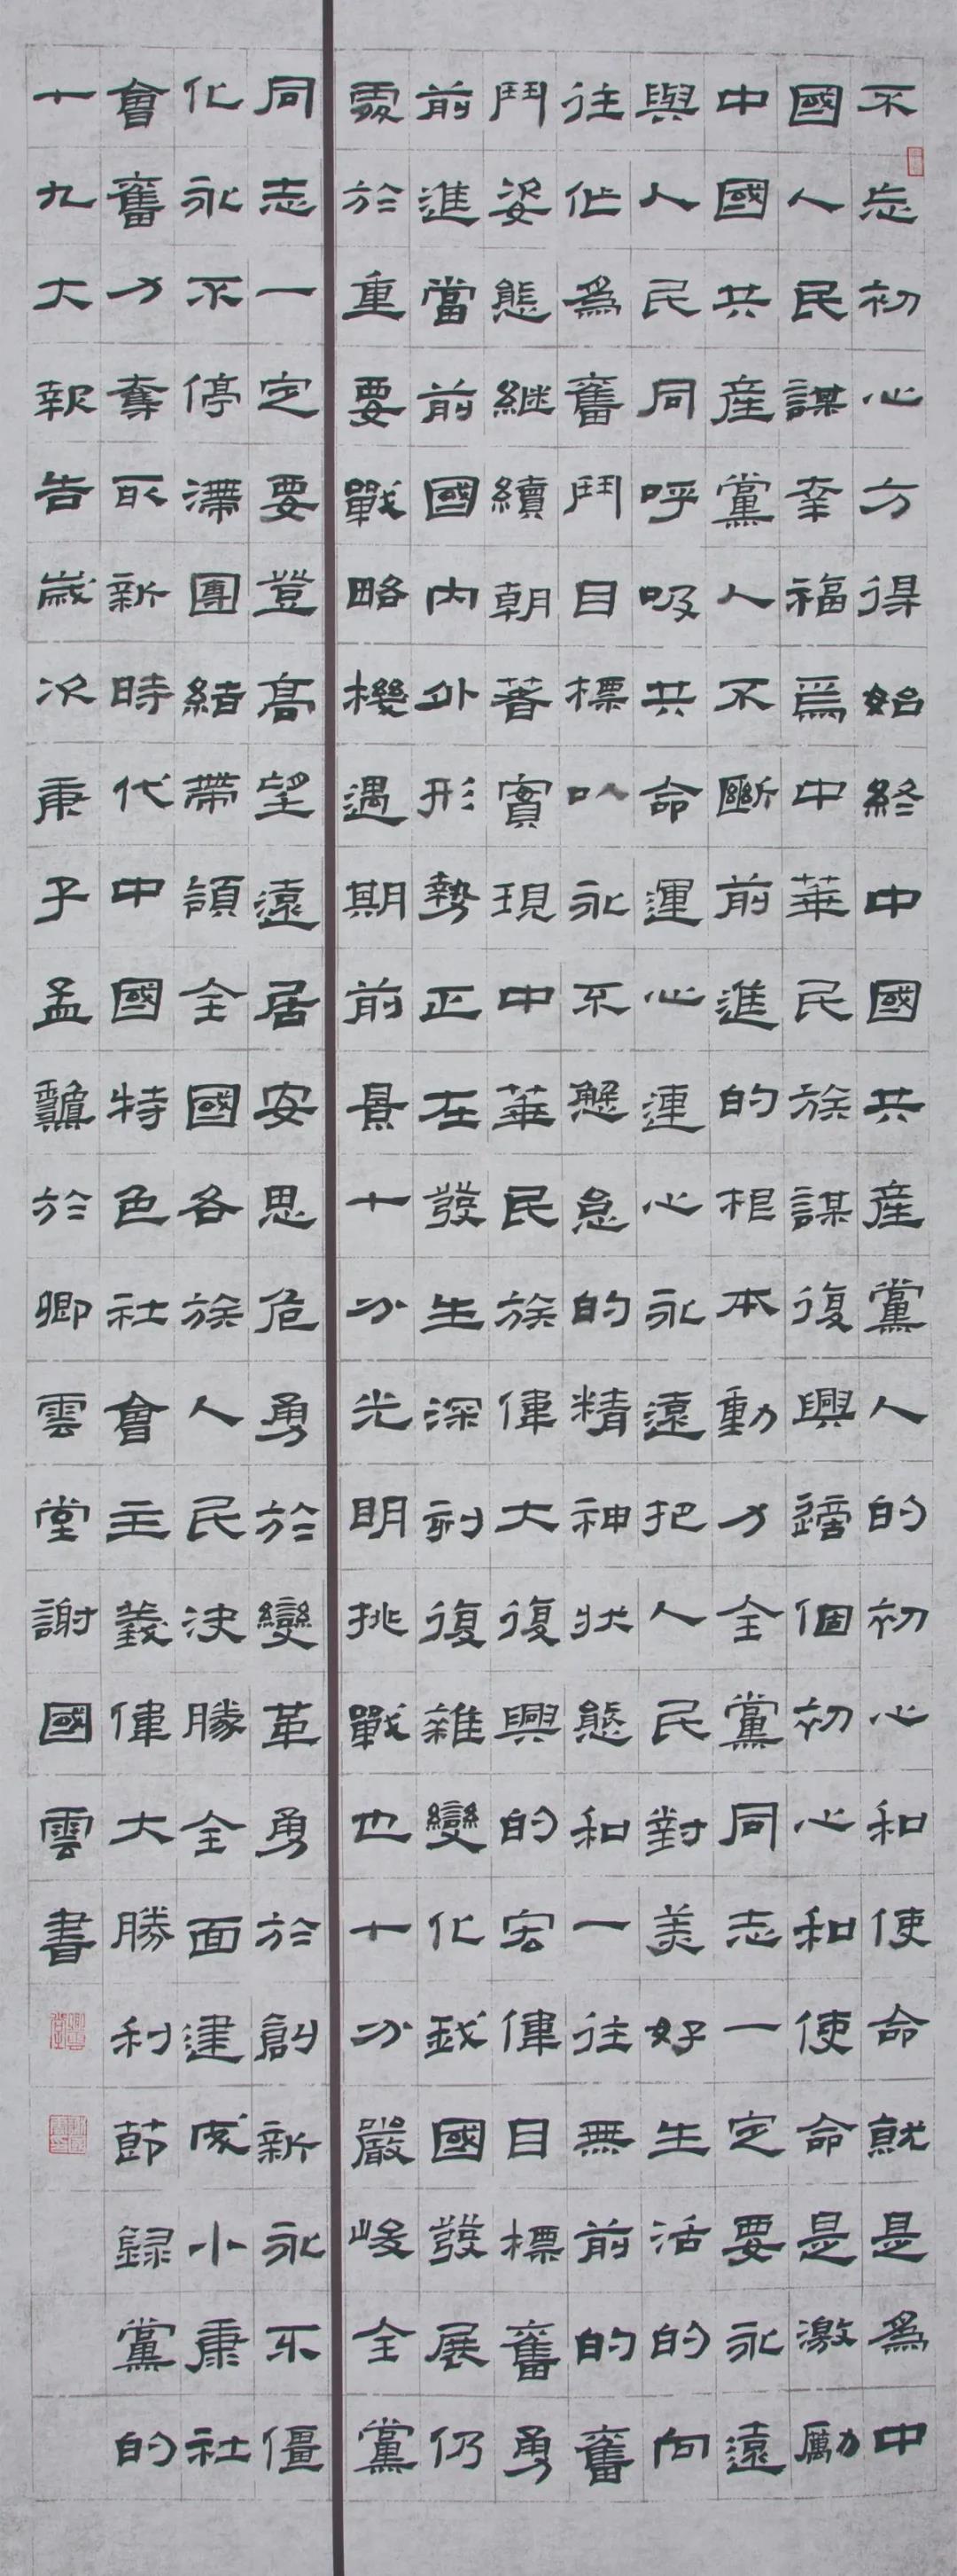 不忘初心方得始終中國共産黨人的初心和使命就是爲中
國人民謀幸福爲中華民族謀復興這個初心和使命是激勵
中國共産黨人不斷前進的根本動力全黨同志一定要永遠
與人民同呼吸共命運心連心永遠把人民對美好生活的向
往作爲奮鬥目標以永不懈怠的精神狀態和一往無前的奮
鬥姿態繼續朝著實現中華民族偉大復興的宏偉目標奮勇
前進當前國内外形勢正在發生深刻復雜變化我國發展仍
處於重要戰略機遇期前景十分光明挑戰也十分嚴峻全黨
同志一定要登高望遠居安思危勇於變革勇於創新永不僵
化永不停滯團結帶領全國各族人民決勝全面建成小康社
會奮力奪取新時代中國特色社會主義偉大勝利節録黨的
十九大報告歲次庚子孟龝於卿雲堂謝國雲書